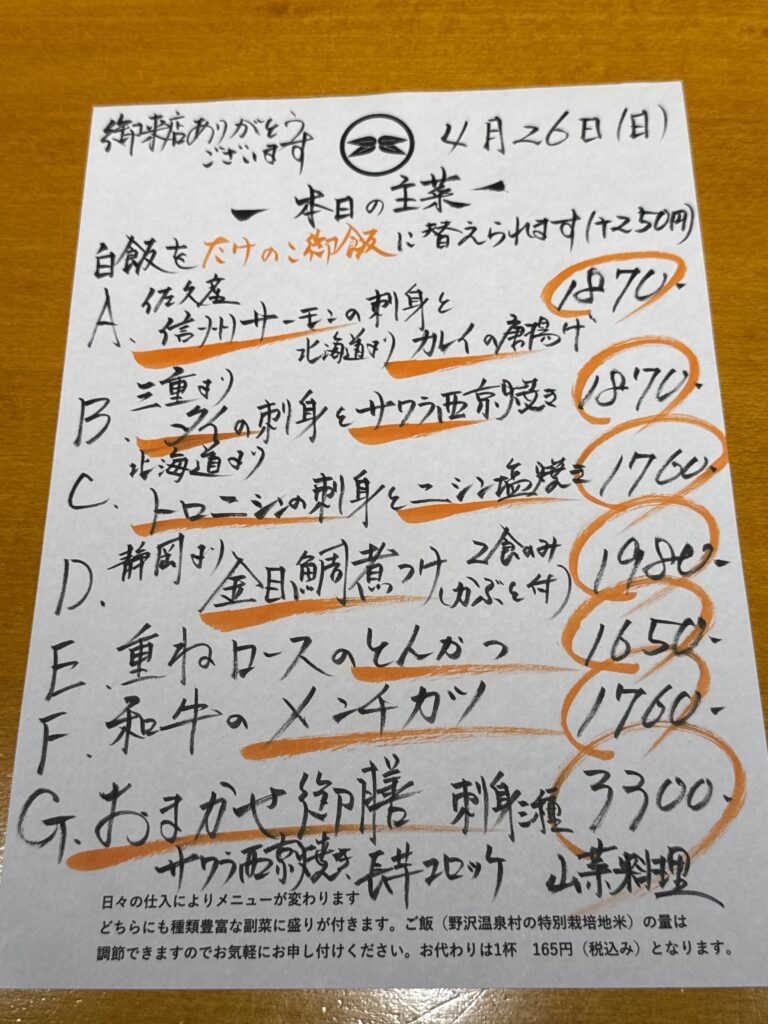 御来店ありがとう
ございます
4月26日(日)
ー本日の主菜ー
白飯をたけのこ御飯に替えられます(+250円)
A. 佐久産
信州サーモンの刺身と
北海道より カレイの唐揚げ 1870-
B. 三重より
タイの刺身とサワラ西京焼き 1870-
C. 北海道より
トロニシンの刺身とニシン塩焼き 1760-
D. 静岡より 金目鯛煮つけ 2食のみ
(かぶと付) 1980-
E. 重ねロースのとんかつ 1650-
F. 和牛のメンチカツ 1760-
G. おまかせ御膳 刺身三種 3300-
サワラ西京焼き 長芋コロッケ 山菜料理
日々の仕入によりメニューが変わります
どちらにも種類豊富な副菜に盛りが付きます。ご飯(野沢温泉村の特別栽培地米)の量は
調節できますのでお気軽にお申し付けください。お代わりは1杯 165円(税込み)となります。